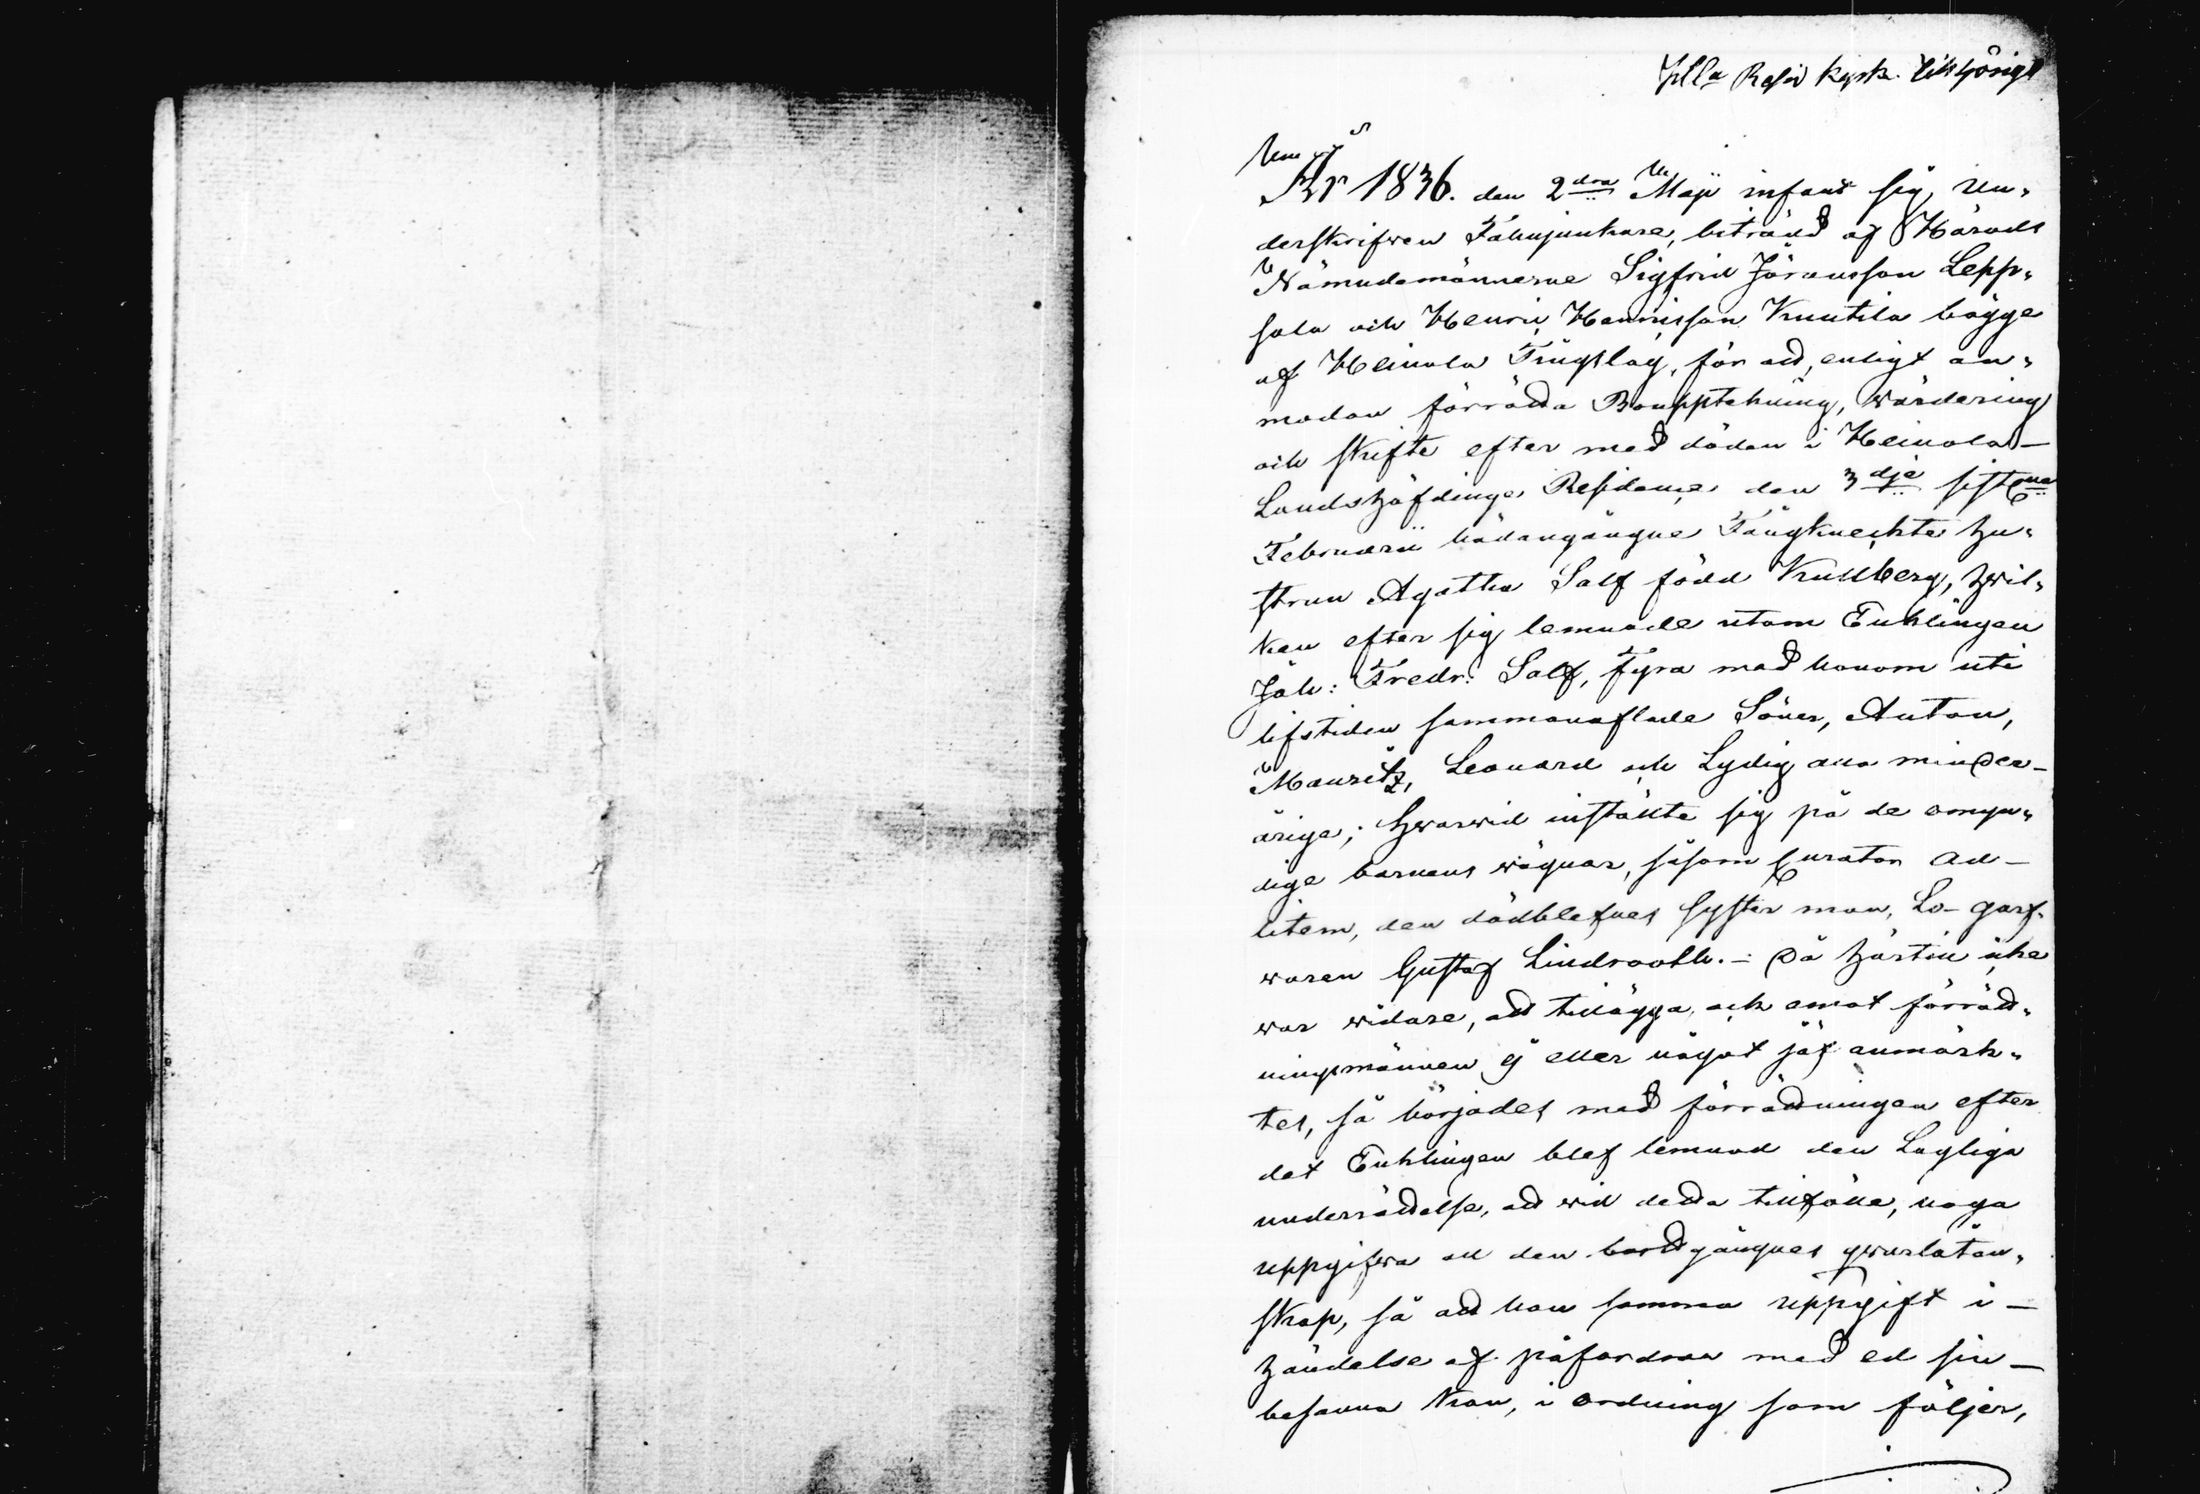 År 1836. den 2dra Maji infant sig, un-
derskrifwen Fahnjunkare, biträdd af Härads
Nämndemännerne Sigfrid Jöransson Lepp-
sala och Henric Henricsson Knutila bägge
af Heinola Tingslag, för att, enligt an-
modan förrätta Bouppteckning, wärdering
och skifte efter med döden i Heinola
Landshöfdinge Residence den 3dje sistl.ne
Februarii hädangångne Fångknechts Hu-
strun Agatha Salf född Kullberg, hwil-
ken efter sig lemnade utom Enklingen
Joh: Fredr: Salf, fyra med honom uti
lifstiden sammanaflade Söner, Anton,
Mauritz, Leonard och Lydig alla minder-
åriga; hwarwid inställte sig på de omyn-
dige barnens wägnar, såsom Curator ad
litem, den dödblefnes syster man, Lo- garf-
waren Gustaf Lindrooth. - Då härtill icke
war widare, att tillägga, och emot förrätt-
ningsmännen ej eller något jäf anmärk-
tes, så börjades med förrättningen efter
det Enklingen blef lemnad den Lagliga
underrättelse, att wid detta tillfälle, noga
uppgifwa all den bortgångnes qwarlåten-
skap, så att han samma uppgift i
händelse af påfordran med ed sin
besanna kan, i ordning som följer,